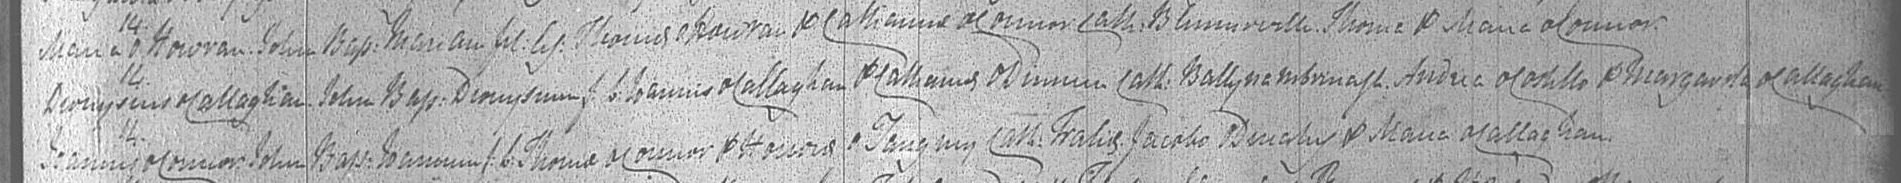 14.
Maria O Howran. John Bap: Mariam fil: leg: Thomæ O Howran & Catharinæ oConnor Cath: Blennerville. Thoma & Maria oConnor.
14.
Dionysius oCallaghan. John Bap: Dionysium f. l. Joannis oCallaghan & Catharinæ ODinneen Cath: Andrea oCostello & Margarita oCallaghan
14.
Joannis oConnor. John Bap: Joannem f. l. Thomæ oConnor & Honoræ o Cath: Tralee. Jacobo & Maria oCallaghan.